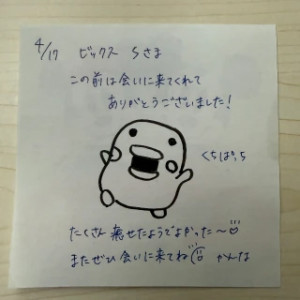 4/17 ビックス Sさま
この前は会いに来てくれて
ありがとうございました!
くちぱっち
たくさん 魅せたようでよかった〜
またぜひ会いに来てね かんな